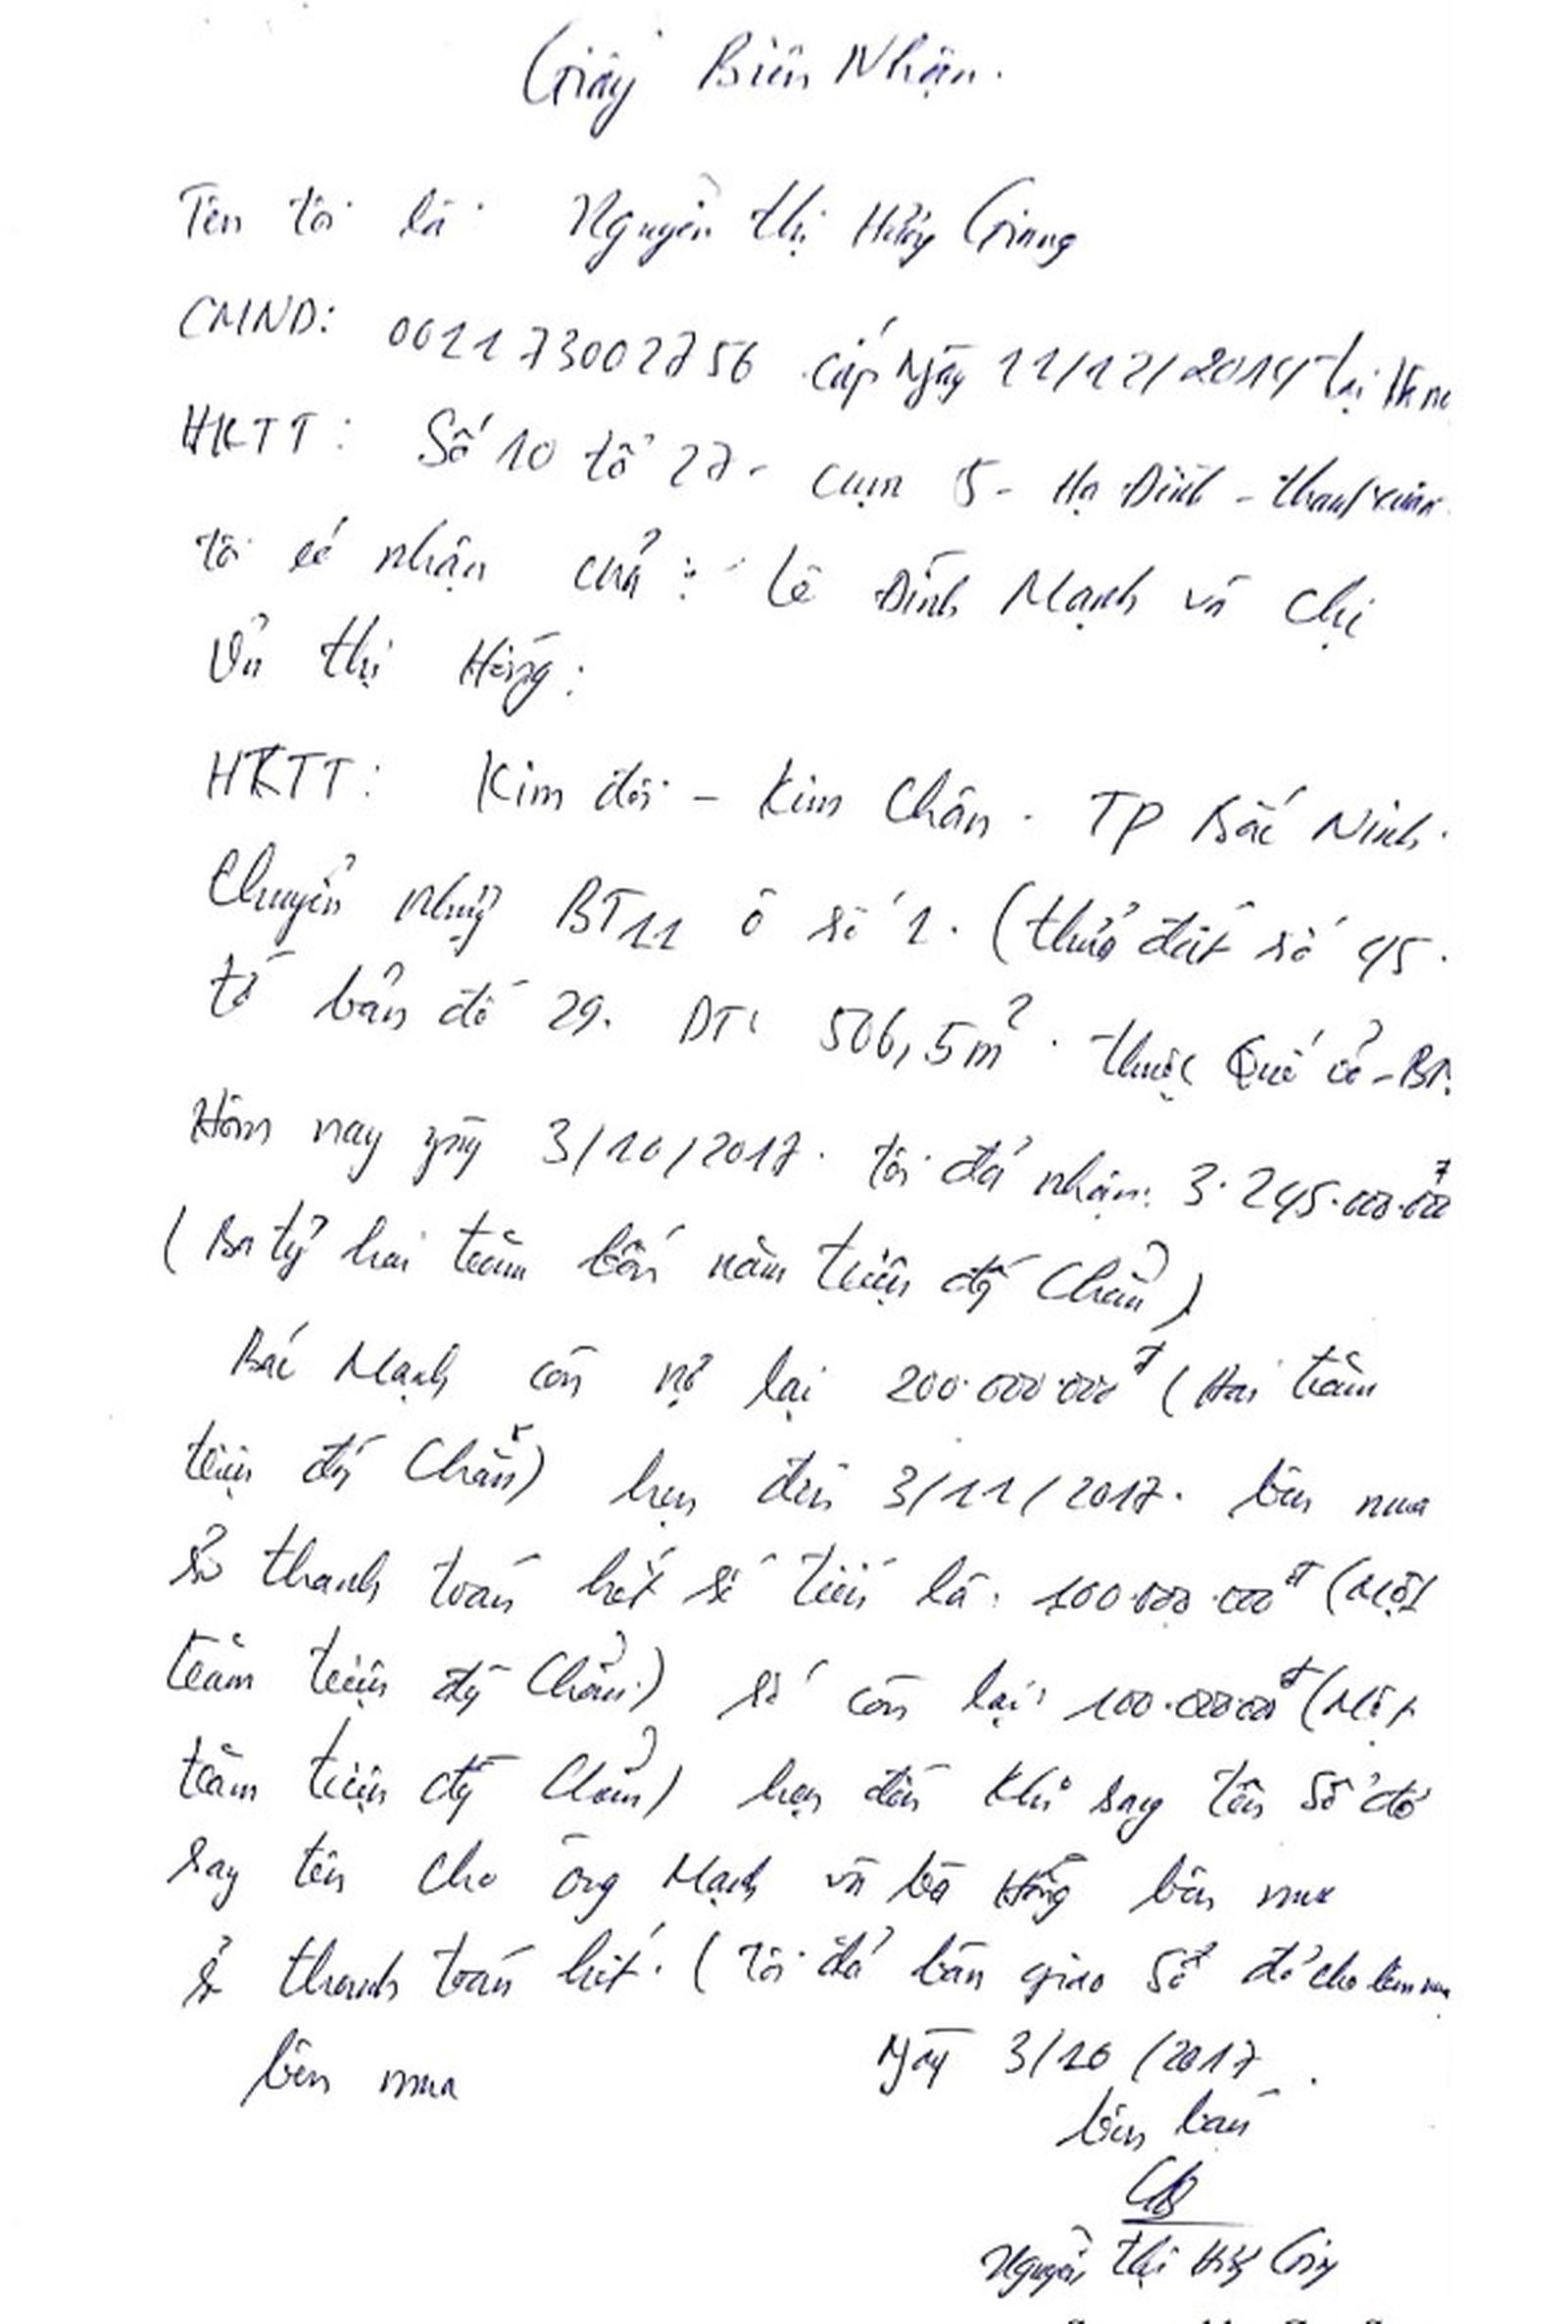 Giấy Biên Nhận.
Tên tôi là: Nguyễn Thị Hương Giang
CMND: 001173002756 cấp ngày 11/12/2014 tại
HKTT: Số 10 tổ 27 - cụm 5 - Hạ Đình - Thanh Xuân
tôi có nhận của: Lê Đình Mạnh và chị
Vũ Thị Hồng:
HKTT: Kim đôi - Kim Chân. TP Bắc Ninh.
Chuyển nhượng BT11 ô số 1. (thửa đất số 45.
tờ bản đồ 29. DT: 506,5m². thuộc Quế võ - BN.
Hôm nay ngày 3/10/2017. tôi đã nhận: 3.245.000.000đ
(Ba tỷ hai trăm bốn năm triệu đồng chẵn)
Bác Mạnh còn nợ lại 200.000.000đ (Hai trăm
triệu đồng chẵn) hẹn đến 3/11/2017. bên mua
sẽ thanh toán hết số tiền là: 100.000.000đ (Một
trăm triệu đồng chẵn) số còn lại: 100.000.000đ (Một
trăm triệu đồng chẵn) hẹn đến khi sang tên Sổ đỏ
sang tên cho ông Mạnh và bà Hồng bên mua
sẽ thanh toán hết. (Tôi đã bàn giao Sổ đỏ cho bên mua
bên mua
Ngày 3/10/2017.
bên bán
Nguyễn Thị Hương Giang